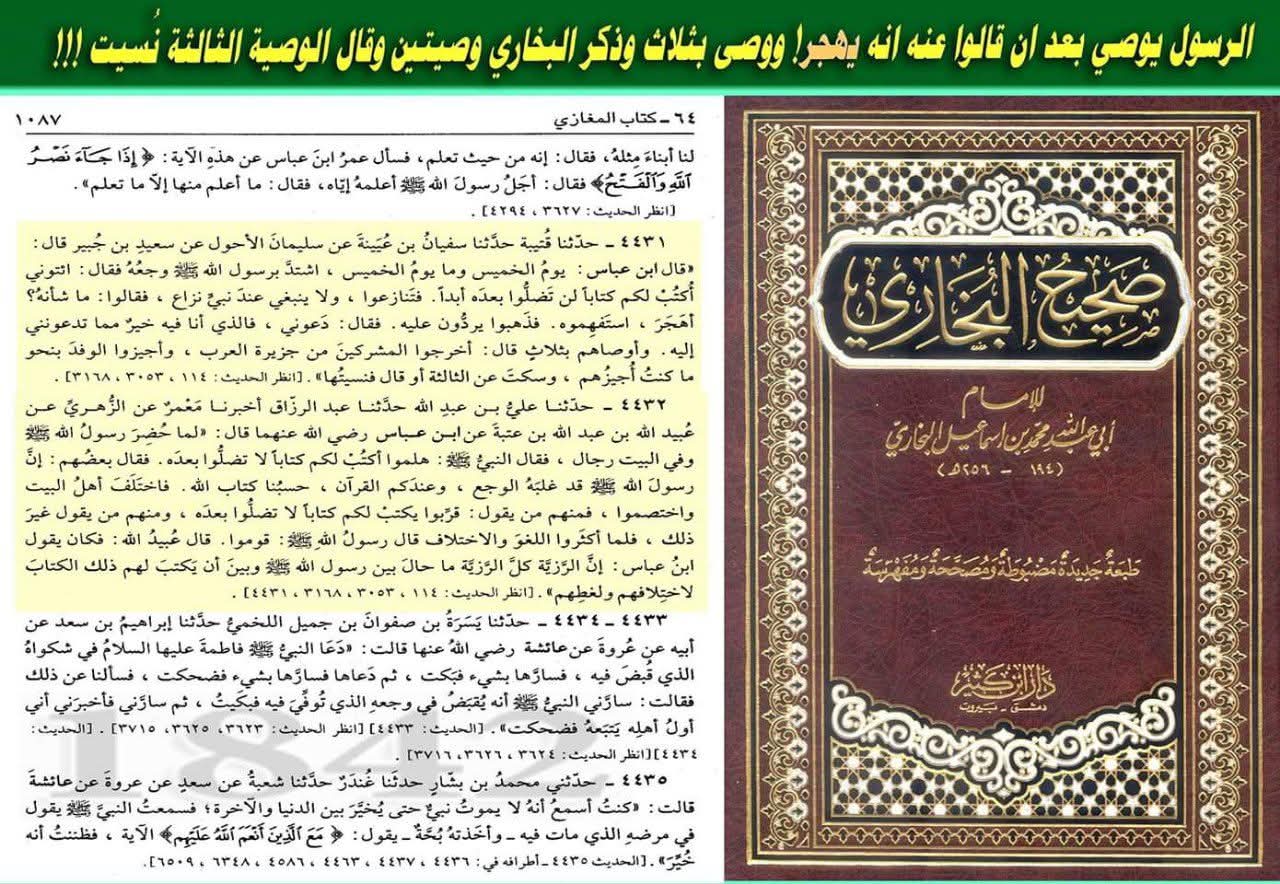 الرسول يوصي بعد ان قالوا عنه انه يهجر! ووصى بثلاث وذكر البخاري وصيتين وقال الوصية الثالثة نُسيت !!!
٦٤ - كتاب المغازي ١٠٨٧
لنا أبناءَ مِثلهُ، فقال: إنه من حيث تعلم، فسأل عمرُ ابنَ عباس عن هذهِ الآية: ﴿ إِذَا جَآءَ نَصْرُ
ٱللَّهِ وَٱلْفَتْحُ﴾ فقال: أجَلُ رسولَ الله ﷺ أعلمهُ إيّاه، فقال: ما أعلم منها إلاّ ما تعلم».
[انظر الحديث: ٣٦٢٧ ، ٤٢٩٤].
٤٤٣١ ـ حدّثنا قُتيبة حدَّثنا سفيانُ بن عُيَينةَ عن سليمانَ الأحول عن سعيدِ بن جُبير قال:
«قال ابن عباس: يومُ الخميس وما يومُ الخميس ، اشتدَّ برسول الله ﷺ وجعُهُ فقال: ائتوني
أكتُبْ لكم كتاباً لن تَضلُّوا بعدَه أبداً. فتَنازعوا ، ولا ينبغي عندَ نبيٍّ نزاع ، فقالوا: ما شأنهُ؟
أهَجَرَ ، استَفهِموه. فذهبوا يردُّون عليه. فقال: دَعوني ، فالذي أنا فيه خيرٌ مما تدعونني
إليه. وأوصاهم بثلاثٍ قال: أخرجوا المشركينَ من جزيرة العرب ، وأجيزوا الوفدَ بنحوِ
ما كنتُ أُجيزُهم ، وسكتَ عن الثالثة أو قال فنسيتُها». [انظر الحديث: ١١٤ ، ٣٠٥٣ ، ٣١٦٨].
٤٤٣٢ ـ حدّثنا عليُّ بن عبدِ الله حدَّثنا عبد الرزّاق أخبرنا مَعْمرٌ عن الزُّهريِّ عن
عُبيد الله بن عبد الله بن عتبةَ عن ابن عباس رضي الله عنهما قال: «لما حُضِرَ رسولُ الله ﷺ
وفي البيت رجال ، فقال النبيُّ ﷺ: هلموا أكتُبْ لكم كتاباً لا تضلُّوا بعدَه. فقال بعضُهم: إنَّ
رسولَ الله ﷺ قد غلبَهُ الوجع ، وعندَكم القرآن ، حسبُنا كتاب الله. فاختلَفَ أهلُ البيت
واختصموا ، فمنهم من يقول: قرِّبوا يكتبْ لكم كتاباً لا تضلُّوا بعدَه ، ومنهم من يقول غيرَ
ذلك ، فلما أكثَروا اللغوَ والاختلاف قال رسولُ اللهِ ﷺ: قوموا. قال عُبيدُ الله: فكان يقول
ابنُ عباس: إنَّ الرَّزيَّة كلَّ الرَّزيَّة ما حالَ بين رسولِ الله ﷺ وبينَ أن يَكتبَ لهم ذلك الكتابَ
لاختِلافِهم ولغَطِهم». [انظر الحديث: ١١٤ ، ٣٠٥٣ ، ٣١٦٨ ، ٤٤٣١].
٤٤٣٣ ـ ٤٤٣٤ ـ حدّثنا يَسَرَةُ بن صفوانَ بن جميل اللخميُّ حدَّثنا إبراهيمُ بن سعد عن
أبيه عن عُروةَ عن عائشة رضيَ اللهُ عنها قالت: «دَعَا النبيُّ ﷺ فاطمةَ عليها السلامُ في شكواهُ
الذي قُبضَ فيه ، فسارَّها بشيء فبَكت ، ثم دَعاها فسارَّها بشيء فضحكت ، فسألنا عن ذلك
فقالت: سارَّني النبيُّ ﷺ أنه يُقبَضُ في وجعهِ الذي تُوفِّيَ فيه فبكَيتُ ، ثم سارَّني فأخبرَني أني
أولُ أهلِه يَتبَعهُ فضحكت». [الحديث: ٤٤٣٣] [انظر الحديث: ٣٦٢٣ ، ٣٦٢٥ ، ٣٧١٥]. [الحديث:
٤٤٣٤][انظر الحديث: ٣٦٢٤ ، ٣٦٢٦ ، ٣٧١٦].
٤٤٣٥ ـ حدّثني محمدُ بن بشّارٍ حدثَنا غُندَرٌ حدَّثنا شعبةُ عن سعدٍ عن عروةَ عن عائشةَ
قالت: «كنتُ أسمعُ أنهُ لا يموتُ نبيٌّ حتى يُخيَّرَ بين الدنيا والآخرة؛ فسمعتُ النبيَّ ﷺ يقول
في مرضهِ الذي مات فيه ـ وأخذته بُحَّةٌ ـ يقول: ﴿ مَعَ ٱلَّذِينَ أَنْعَمَ ٱللَّهُ عَلَيْهِم﴾ الآية ، فظننتُ أنه
خُيِّرَ». [الحديث ٤٤٣٥ ـ أطرافه في: ٤٤٣٦ ، ٤٤٣٧ ، ٤٤٦٣ ، ٤٥٨٦ ، ٦٣٤٨ ، ٦٥٠٩].
1842
صَحِيحُ البُخَارِي
للإمام
أبي عبد الله محمد بن إسماعيل البخاري
(١٩٤ - ٢٥٦هـ)
طَبعَة جَديدَة مَضبُوطَة وَمُصَحَّحَة وَمُفَهرَسَة
دار ابن كثير
دمشق - بيروت